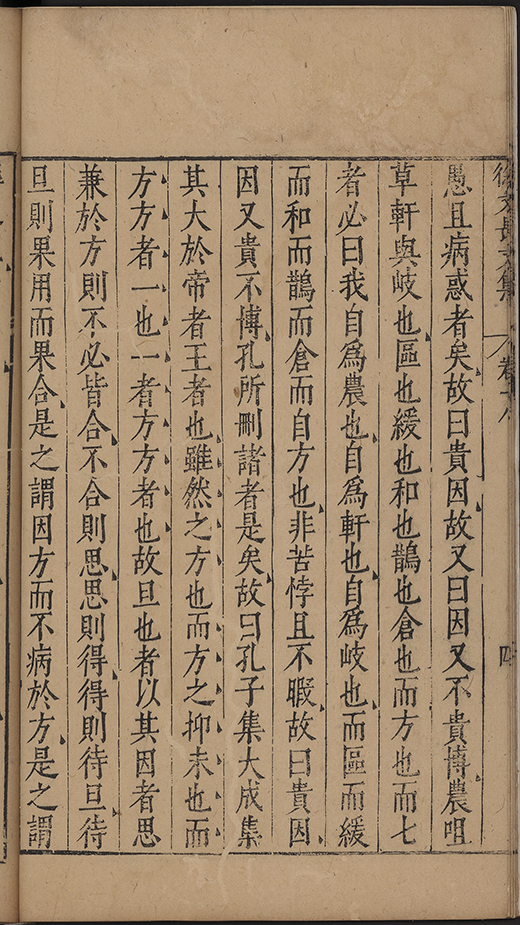 徐文長文集 卷十八 四
愚且病惑者矣故曰貴因故又曰因又不貴博農咀
草軒與岐也區也緩也和也鵲也倉也而方也而七
者必曰我自為農也自為軒也自為岐也而區而緩
而和而鵲而倉而自方也非苦悖且不暇故曰貴因
因又貴不博孔所刪諸者是矣故曰孔子集大成集
其大於帝者王者也雖然之方也而方之抑未也而
方方者一也一者方方者也故旦也者以其因者思
兼於方則不必皆合不合則思思則得得則待旦待
旦則果用而果合是之謂因方而不病於方是之謂